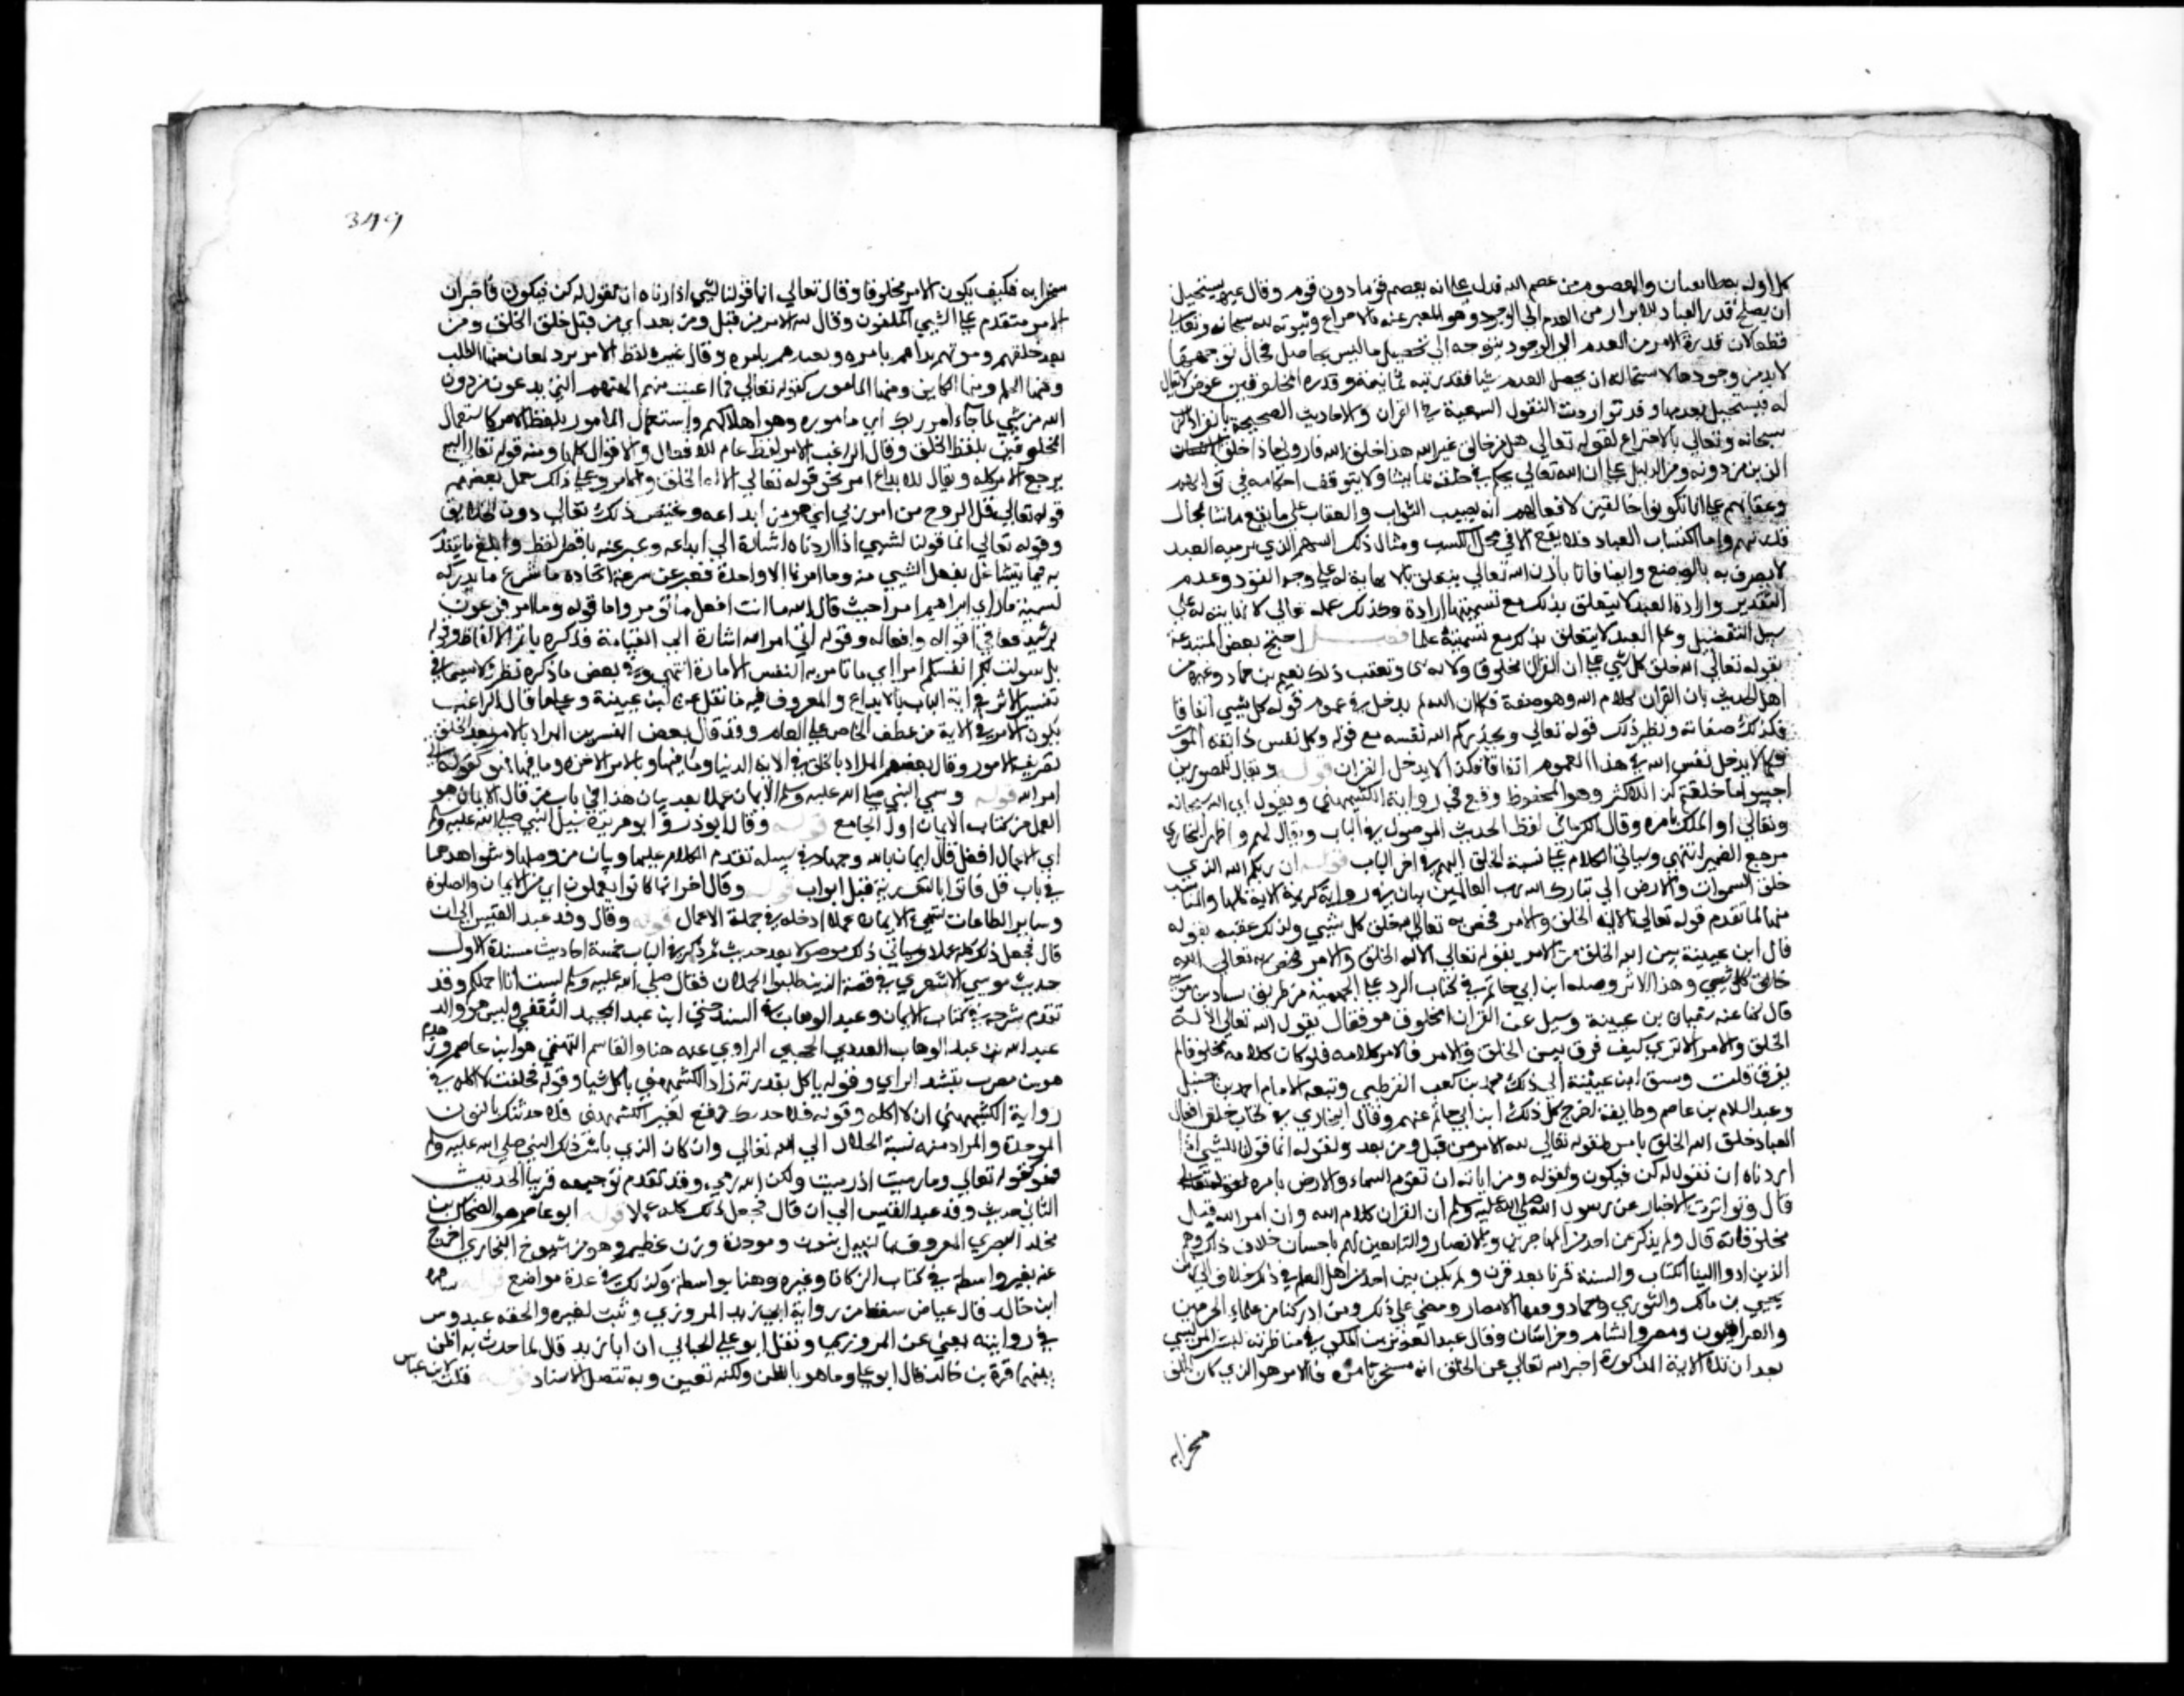 كل اوله بعطالعبان والمعصوم من عصم الله فدل على انه يعصم قوما دون قوم وقال غيره يستحيل
ان يصلح قدر العباد للابراز من العدم الى الوجود وهو المعبر عنه بالاختراع وثبوته لله سبحانه وتعالى
قطعا لان قدرة الابراز من العدم الى الوجود يتوجه الى تحصيل ما ليس بحاصل فحال توجهها
لابد من وجودها لاستحالة ان يحصل العدم شيا فقدرته ثابتة وقدرة المخلوقين عرض لا بقا
له فيستحيل تقدمها وقد تواردت النقول السمعية في القران والاحاديث الصحيحة بانفراد الرب
سبحانه وتعالى بالاختراع لقوله تعالى هل من خالق غير الله هذا خلق الله فاروني ماذا خلق
الذين من دونه ومن الدليل على ان الله تعالى يحكم في خلقه بما يشا ولا يتوقف احكامه في ثوابهم
وعقابهم على ان يكونوا خالقين لافعالهم انه نصب الثواب والعقاب على ما يقع مباينا لمحال
قدرتهم واما اكتساب العباد فلا يقع الا في محل الكسب ومثال ذلك السهم الذي يرميه العبد
لا تصرف له بالرفع وايضا فان ارادة الله تعالى يتعلق بالا نهاية له على وجه النفوذ وعدم
التقدير وارادة العبد لا يتعلق بذلك مع تسميتها ارادة وكذلك علمه تعالى لا نهاية له على
سبيل التفصيل وعلم العبد لا يتعلق بذلك مع تسميته علما فصل احتج بعض المبتدعة
بقوله تعالى الله خلق كل شي على ان القران مخلوق لانه شي وتعقب ذلك نعيم بن حماد وغيره من
اهل الحديث بان القران كلام الله وهو صفته فكما ان الله لم يدخل في عموم قوله كل شي اتفاقا
فكذلك صفاته ونظير ذلك قوله تعالى ويحذركم الله نفسه مع قوله وكل نفس ذايقة الموت
فكما لا يدخل نفس الله في هذا العموم اتفاقا فكذا لا يدخل القران قوله ويقال للمصورين
احيوا ما خلقتم كذا للاكثر وهو المحفوظ ووقع في رواية الكشميهني ويقول اي الله سبحانه
وتعالى او الملك بامره وقال الكرماني لفظ الحديث الموصول في الباب ويقال لهم واظهر البخاري
مرجع الضمير انتهى وسياتي الكلام على نسبة الخلق اليهم في اخر الباب قوله ان ربكم الله الذي
خلق السموات والارض الى تبارك الله رب العالمين بيان في رواية كريمة الاية كلها والمناسب
منها لما تقدم قوله تعالى الا له الخلق والامر فيخص به تعالى الله خلق كل شي ولذلك عقبه بقوله
قال ابن عيينة بين الله الخلق من الامر بقوله تعالى الا له الخلق والامر فيخص به تعالى الله
خالق كل شي وهذا الاثر وصله ابن ابي حاتم في كتاب الرد على الجهمية من طريق بشار بن موسى
قال كنا عند سفيان بن عيينة وسيل عن القران امخلوق هو فقال يقول الله تعالى الا له
الخلق والامر الا ترى كيف فرق بين الخلق والامر فالامر كلامه فلو كان كلامه مخلوقا لم
يفرق قلت وسبق ابن عيينة الى ذلك محمد بن كعب القرظي وتبعه الامام احمد بن حنبل
وعبد السلام بن عاصم وطايفة اخرج كل ذلك ابن ابي حاتم عنهم وقال البخاري في كتاب خلق افعال
العباد خلق الله الخلق بامره لقوله تعالى لله الامر من قبل ومن بعد ولقوله انما قولنا لشيي اذا
اردناه ان نقول له كن فيكون ولقوله ومن اياته ان تقوم السماء والارض بامره
قال وتواترت الاخبار عن رسول الله صلى الله عليه وسلم ان القران كلام الله وان امر الله قبل
مخلوقاته قال ولم يذكر عن احد من المهاجرين والانصار والتابعين لهم باحسان خلاف ذلك وهم
الذين ادوا الينا الكتاب والسنة قرنا بعد قرن ولم يكن بين احد من اهل العلم في ذلك خلاف الى زمن
يحيى بن مالك والثوري وحماد وفقهاء الامصار ومضى على ذلك من ادركنا من علماء الحرمين
والعراقيون ومصر والشام وخراسان وقال عبد العزيز بن المكي في مناظرته لبشر المريسي
بعد ان تلا الاية المذكورة اخبر الله تعالى عن الخلق انه مسخر بامره فالامر هو الذي كان الخلق
مسخرا به
349
مسخرا به فكيف يكون الامر مخلوقا وقال تعالى انما قولنا لشي اذا اردناه ان نقول له كن فيكون فاخبر ان
الامر متقدم على الشيي المكون وقال لله الامر من قبل ومن بعد اي من قبل خلق الخلق ومن
بعد خلقهم وموتهم بداهم بامره ويعيدهم بامره وقال غيره لفظ الامر يرد لمعان منها الطلب
ومنها الحكم ومنها الكاين ومنها المامور كقوله تعالى فما اغنت عنهم الهتهم التي يدعون من دون
الله من شي لما جاء امر ربك اي مامورة وهو اهلاكهم واستعمال المامور بلفظ الامر كاستعمال
المخلوق بلفظ الخلق وقال الراغب الامر لفظ عام للافعال والاقوال كلها ومنه قوله تعالى اليه
يرجع الامر كله ويقال للابداع امر نحو قوله تعالى الا له الخلق والامر وعلى ذلك حمل بعضهم
قوله تعالى قل الروح من امر ربي اي هو من ابداعه ويختص ذلك تعالى دون الخلايق
وقوله تعالى انما قولنا لشيي اذا اردناه اشارة الى ابداعه وعبر عنه باقصر لفظ وابلغ ما يتقدم
به فيما بيننا على بفعل الشيي منه وما امرنا الا واحدة فعبر عن سرعة اتخاذه باسرع ما يدركه
تسمية ما راى ابراهيم امرا حيث قال الله ما انت افعل ما تومر واما قوله وما امر فرعون
برشيد فعام في اقواله وافعاله وقوله اتى امر الله اشارة الى القيامة فذكره باعم الالفاظ وقوله
بل سولت لكم انفسكم امرا اي ما تامر به النفس الامارة انتهى وفي بعض ما ذكره نظر لا سيما في
تفسير الامر في اية الباب بالابداع والمعروف فيه ما نقل عن ابن عيينة وعلى ما قال الراغب
يكون الامر في الاية من عطف الخاص على العام وقد قال بعض المفسرين المراد بالامر بعد الخلق
تصريف الامور وقال بعضهم المراد بالخلق في الاية الدنيا وما فيها وبالامر الاخرة وما فيها فهو كقوله اتى
امر الله قوله وسمى النبي صلى الله عليه وسلم الايمان عملا بعد بيان هذا في باب من قال الايمان هو
العمل من كتاب الايمان اول الجامع قوله وقال ابو ذر وابو هريرة سيل النبي صلى الله عليه وسلم
اي الاعمال افضل قال ايمان بالله وجهاد في سبيله تقدم الكلام عليهما وبيان من وصلهما وشواهدهما
في باب قل فاتوا بالتورية قبل ابواب قوله وقال جزا بما كانوا يعملون اي من الايمان والصلوة
وساير الطاعات فسمى الايمان عملا ادخله في جملة الاعمال قوله وقال وفد عبد القيس الى ان
قال فجعل ذلك كله عملا وسياتي ذلك موصولا بعد حديث ثم ذكر في الباب خمسة احاديث مسندة الاول
حديث موسى الاشعري في قصة الذين طلبوا الحملان فقال صلى الله عليه وسلم لست انا احملكم وقد
تقدم شرحه في كتاب الايمان وعبد الوهاب في السند حتى ابن عبد المجيد الثقفي وليس هو والد
عبد الله بن عبد الوهاب العبدي الحجبي الراوي عنه هنا والقاسم التميمي هو ابن عاصم وزهدم
هو بن مضرب بتشديد الراي وقوله ياكل بقذرته زاد الكشميهني ياكل شيا وقوله فحلفت لا اكله في
رواية الكشميهني ان لا اكله وقوله فلا حدثك وقع لغير الكشميهني فلا حدثنك بالنون
الموحدة والمراد منه نسبة الحملان الى الله تعالى وان كان الذي باشر ذلك النبي صلى الله عليه وسلم
فهو كقوله تعالى وما رميت اذ رميت ولكن الله رمى وقد تقدم توجيهه قريبا الحديث
الثاني حديث وفد عبد القيس الى ان قال فجعل ذلك كله عملا قوله ابو عاصم هو الضحاك بن
مخلد البصري المعروف بالنبيل بنون وموحدة وزن عظيم وهو من شيوخ البخاري اخرج
عنه بغير واسطة في كتاب الزكاة وغيره وهنا بواسطة وكذلك في عدة مواضع قوله ساقرة
ابن خالد قال عياض سقط من رواية ابي زيد المروزي وثبت لغيره والحقه عبدوس
في روايته يعني عن المروزي ونقل ابو علي الجبالي ان ابا زيد قال لما حدث به اظن
بينهما قرة بن خالد قال ابو علي وما هو بالظن ولكنه تعين وبه تتصل الاسناد قوله قلت لابن عباس